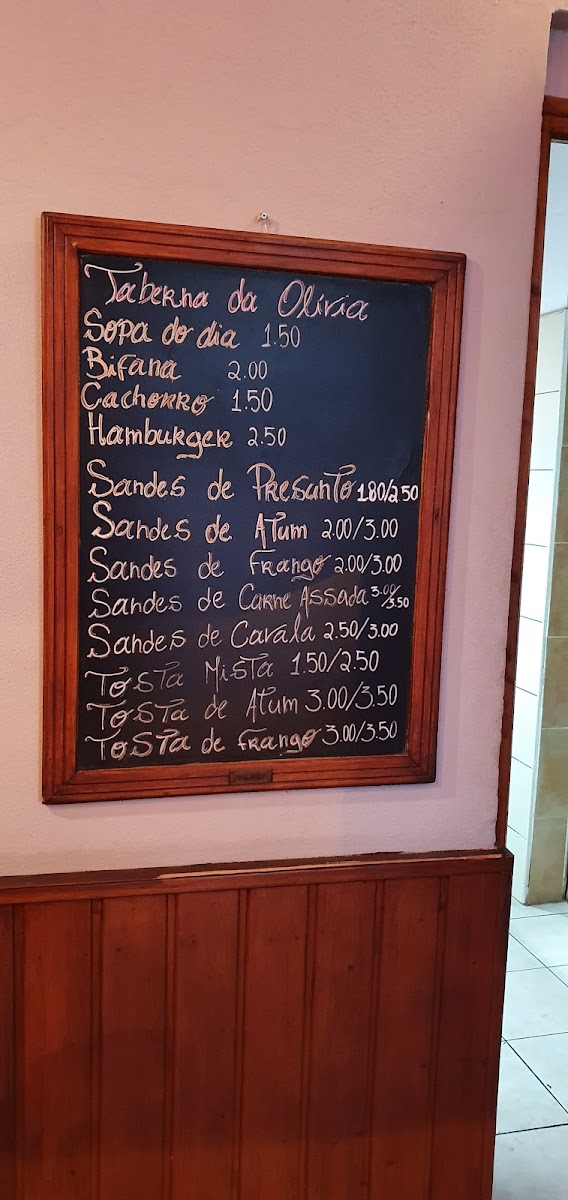 Taberna da Olivia
Sopa do dia 1.50
Bifana 2.00
Cachorro 1.50
Hamburger 2.50
Sandes de Presunto 1.80/2.50
Sandes de Atum 2.00/3.00
Sandes de Frango 2.00/3.00
Sandes de Carne Assada 3.00/3.50
Sandes de Cavála 2.50/3.00
Tosta Mista 1.50/2.50
Tosta de Atum 3.00/3.50
Tosta de Frango 3.00/3.50